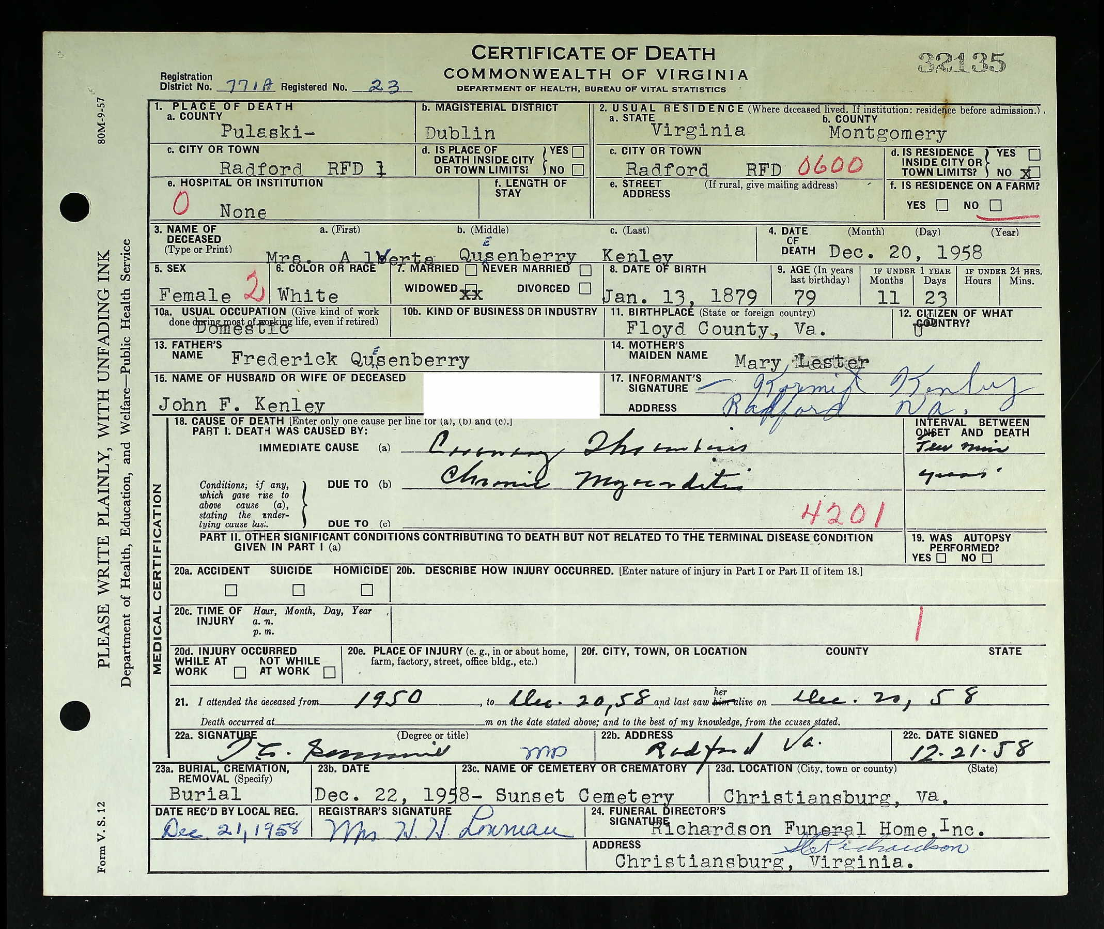 CERTIFICATE OF DEATH
COMMONWEALTH OF VIRGINIA
DEPARTMENT OF HEALTH, BUREAU OF VITAL STATISTICS
32135
Registration District No. 771A Registered No. 23
80M-9-57
PLEASE WRITE PLAINLY, WITH UNFADING INK
Department of Health, Education, and Welfare—Public Health Service
Form V. S. 12
1. PLACE OF DEATH
a. COUNTY
Pulaski-
b. MAGISTERIAL DISTRICT
Dublin
2. USUAL RESIDENCE (Where deceased lived. If institution: residence before admission.)
a. STATE
Virginia
b. COUNTY
Montgomery
c. CITY OR TOWN
Radford RFD 1
d. IS PLACE OF DEATH INSIDE CITY OR TOWN LIMITS? YES NO
c. CITY OR TOWN
Radford RFD 0600
d. IS RESIDENCE INSIDE CITY OR TOWN LIMITS? YES NO X
e. HOSPITAL OR INSTITUTION
0 None
f. LENGTH OF STAY
e. STREET ADDRESS (If rural, give mailing address)
f. IS RESIDENCE ON A FARM?
YES NO
3. NAME OF DECEASED (Type or Print)
a. (First) b. (Middle) c. (Last)
Mrs. Alverta Qusenberry Kenley
E
4. DATE OF DEATH (Month) (Day) (Year)
Dec. 20, 1958
5. SEX
Female 2
6. COLOR OR RACE
White
7. MARRIED NEVER MARRIED
WIDOWED XX DIVORCED
8. DATE OF BIRTH
Jan. 13, 1879
9. AGE (In years last birthday)
79
IF UNDER 1 YEAR
Months Days
11 23
IF UNDER 24 HRS.
Hours Mins.
10a. USUAL OCCUPATION (Give kind of work done during most of working life, even if retired)
Domestic
10b. KIND OF BUSINESS OR INDUSTRY
11. BIRTHPLACE (State or foreign country)
Floyd County, Va.
12. CITIZEN OF WHAT COUNTRY?
U
13. FATHER'S NAME
Frederick Qusenberry
E
14. MOTHER'S MAIDEN NAME
Mary Lester
15. NAME OF HUSBAND OR WIFE OF DECEASED
John F. Kenley
17. INFORMANT'S SIGNATURE Kermit Kenley
ADDRESS Radford Va.
MEDICAL CERTIFICATION
18. CAUSE OF DEATH [Enter only one cause per line for (a), (b) and (c).]
PART I. DEATH WAS CAUSED BY:
INTERVAL BETWEEN ONSET AND DEATH
IMMEDIATE CAUSE (a) Coronary Thrombosis
Few min
Conditions, if any, which gave rise to above cause (a), stating the underlying cause last.
DUE TO (b) Chronic Myocarditis
years
DUE TO (c)
4201
PART II. OTHER SIGNIFICANT CONDITIONS CONTRIBUTING TO DEATH BUT NOT RELATED TO THE TERMINAL DISEASE CONDITION GIVEN IN PART I (a)
19. WAS AUTOPSY PERFORMED?
YES NO
20a. ACCIDENT SUICIDE HOMICIDE
20b. DESCRIBE HOW INJURY OCCURRED. [Enter nature of injury in Part I or Part II of item 18.]
20c. TIME OF INJURY Hour, Month, Day, Year
a. m.
p. m.
1
20d. INJURY OCCURRED
WHILE AT WORK NOT WHILE AT WORK
20e. PLACE OF INJURY (e. g., in or about home, farm, factory, street, office bldg., etc.)
20f. CITY, TOWN, OR LOCATION COUNTY STATE
21. I attended the deceased from 1950, to Dec. 20, 58 and last saw him her alive on Dec. 20, 58
Death occurred at m on the date stated above; and to the best of my knowledge, from the causes stated.
22a. SIGNATURE (Degree or title)
MD
22b. ADDRESS
Radford Va.
22c. DATE SIGNED
12-21-58
23a. BURIAL, CREMATION, REMOVAL (Specify)
Burial
23b. DATE
Dec. 22, 1958-
23c. NAME OF CEMETERY OR CREMATORY
Sunset Cemetery
23d. LOCATION (City, town or county) (State)
Christiansburg, Va.
DATE REC'D BY LOCAL REG.
Dec 21, 1958
REGISTRAR'S SIGNATURE
Mrs W W
24. FUNERAL DIRECTOR'S SIGNATURE
Richardson Funeral Home, Inc.
Richardson
ADDRESS
Christiansburg, Virginia.